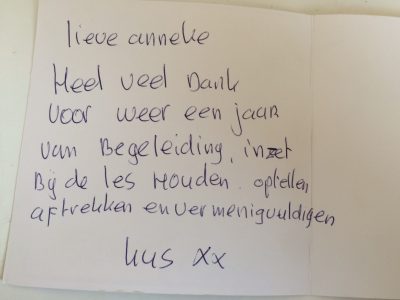 lieve anneke
Heel veel Dank
voor weer een jaar
van Begeleiding, inzet
Bij de les Houden. optellen
aftrekken en vermeniguuldigen
kus xx